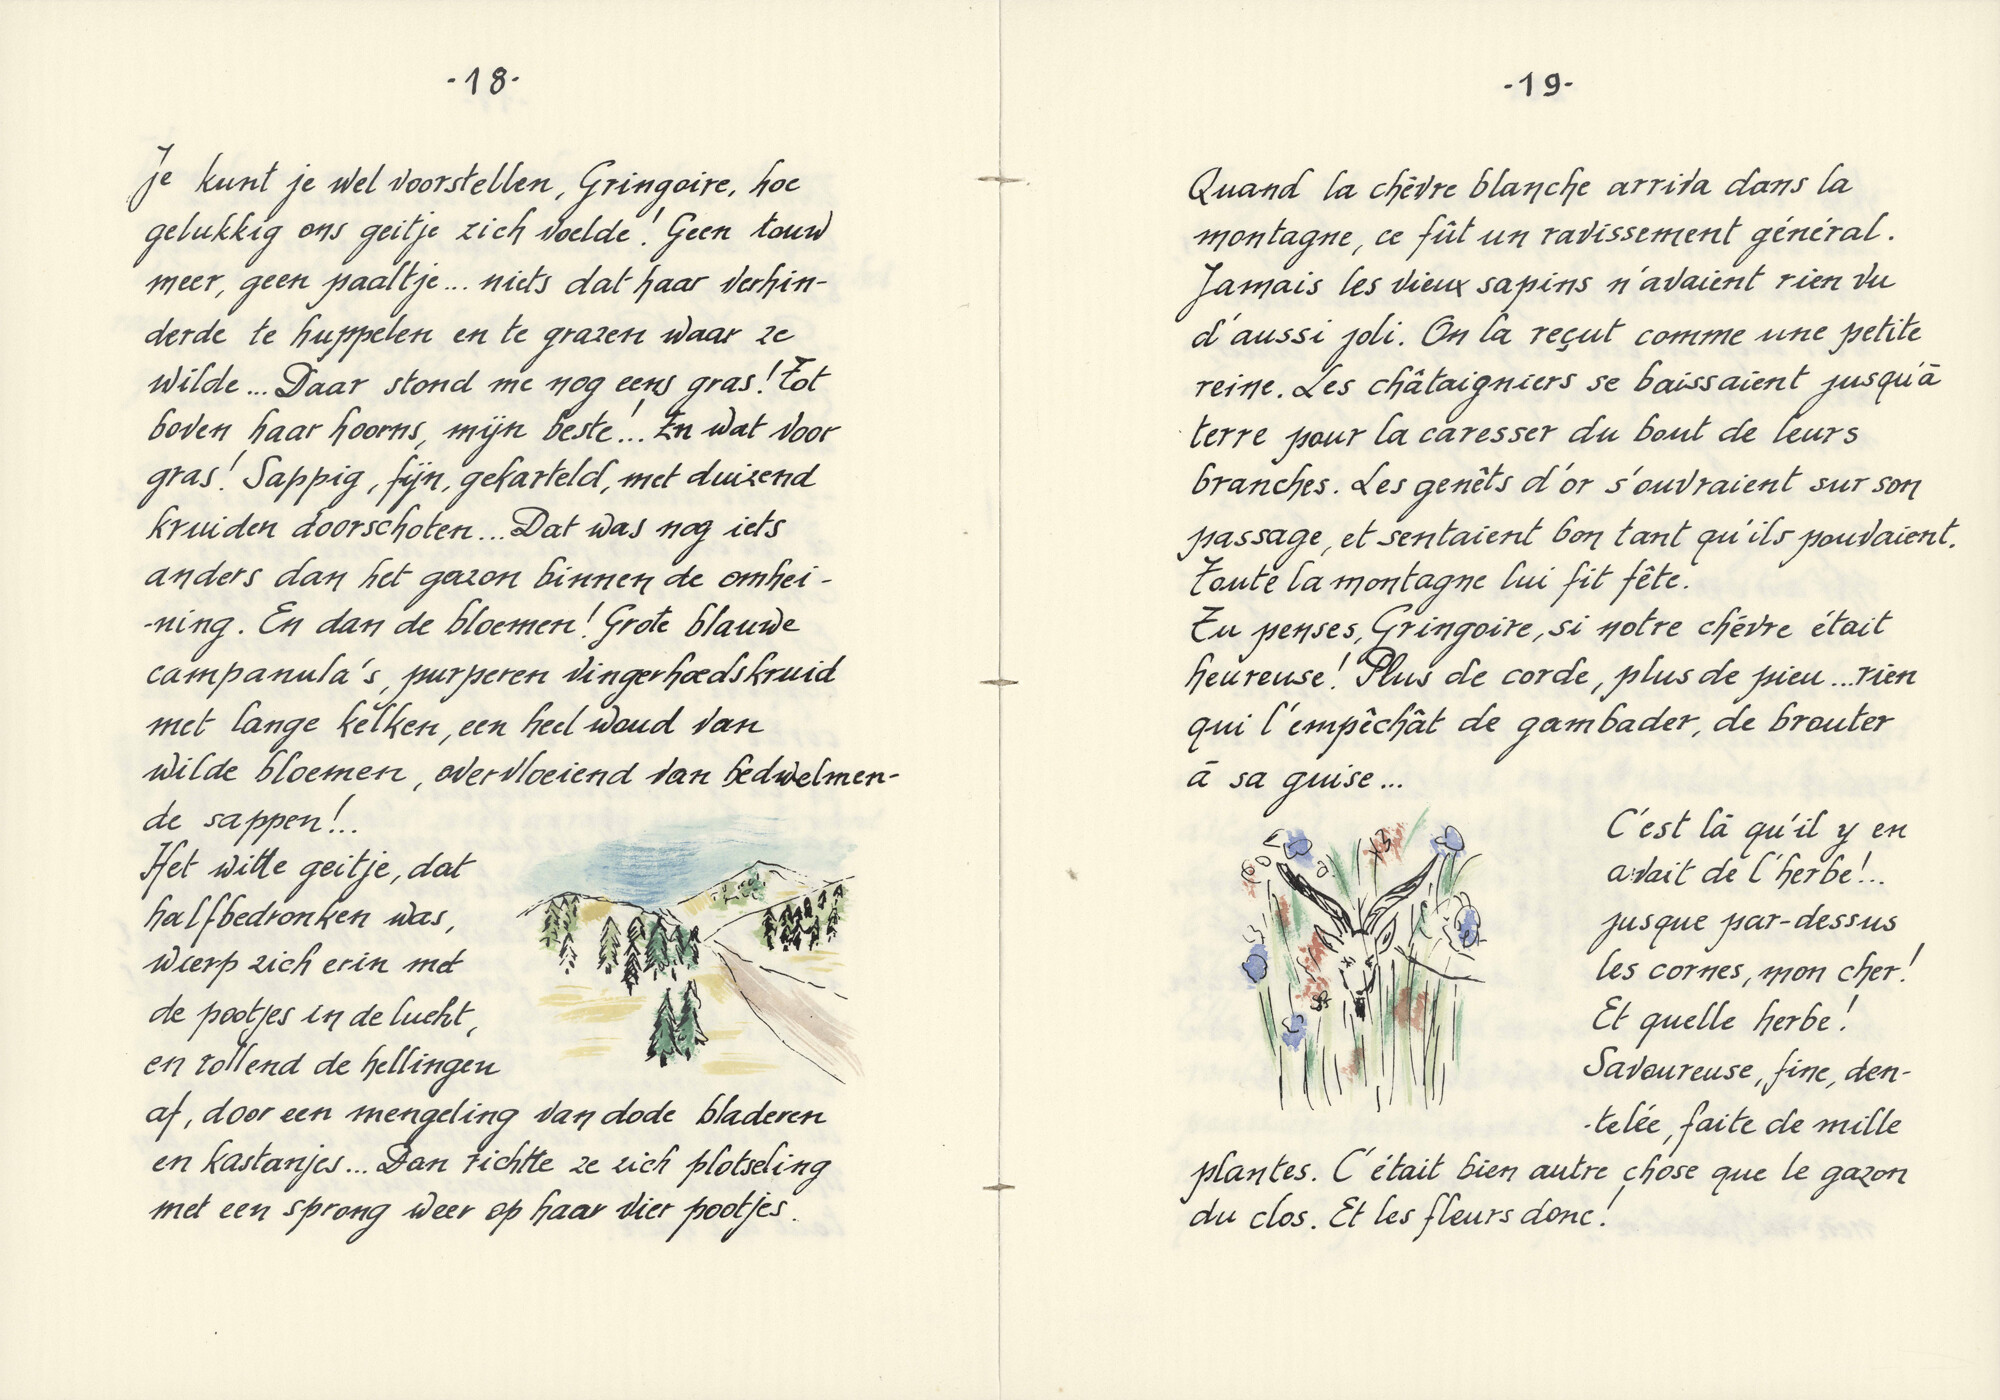 -18-
Je kunt je wel voorstellen, Gringoire, hoe
gelukkig ons geitje zich voelde! Geen touw
meer, geen paaltje... niets dat haar verhin-
derde te huppelen en te grazen waar ze
wilde... Daar stond me nog eens gras! Tot
boven haar hoorns, mijn beste!... En wat voor
gras! Sappig, fijn, gekarteld, met duizend
kruiden doorschoten... Dat was nog iets
anders dan het gazon binnen de omhei-
-ning. En dan de bloemen! Grote blauwe
campanula's, purperen vingerhoedskruid
met lange kelken, een heel woud van
wilde bloemen, overvloeiend van bedwelmen-
de sappen!..
Het witte geitje, dat
halfbedronken was,
wierp zich erin met
de pootjes in de lucht,
en rollend de hellingen
af, door een mengeling van dode bladeren
en kastanjes... Dan richtte ze zich plotseling
met een sprong weer op haar vier pootjes.
-19-
Quand la chèvre blanche arriva dans la
montagne, ce fût un ravissement général.
Jamais les vieux sapins n'avaient rien vu
d'aussi joli. On la reçut comme une petite
reine. Les châtaigniers se baissaient jusqu'à
terre pour la caresser du bout de leurs
branches. Les genêts d'or s'ouvraient sur son
passage, et sentaient bon tant qu'ils pouvaient.
Toute la montagne lui fit fête.
Tu penses, Gringoire, si notre chèvre était
heureuse! Plus de corde, plus de pieu...rien
qui l'empêchât de gambader, de brouter
à sa guise...
C'est là qu'il y en
avait de l'herbe!..
jusque par-dessus
les cornes, mon cher!
Et quelle herbe!
Savoureuse, fine, den-
-telée, faite de mille
plantes. C'était bien autre chose que le gazon
du clos. Et les fleurs donc!